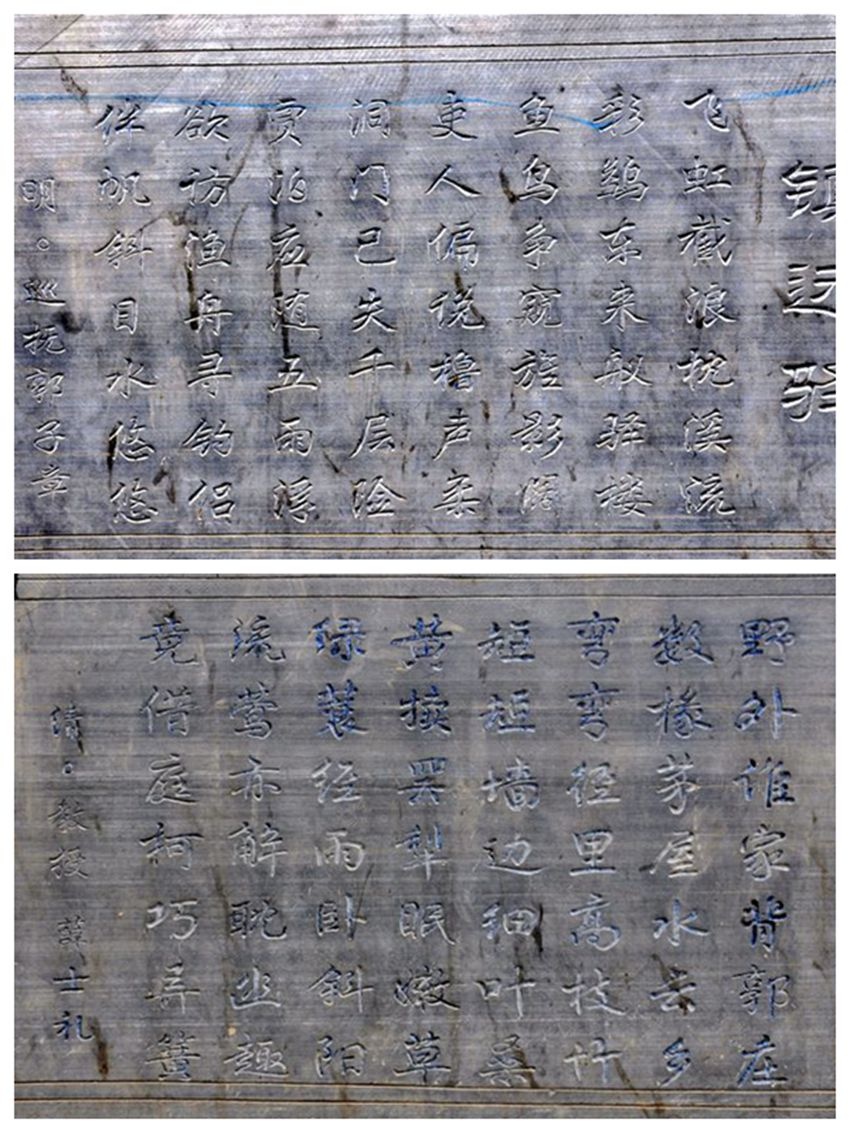 镇远驿
飞虹截浪枕溪流
彩鹢东来舣驿楼
鱼鸟争窥旌影
吏人偏橹声柔
洞门已失千层险
泊应随五雨浮
欲访渔舟寻钓侣
伴帆斜目水悠悠
明。巡抚郭子章
野外谁家背郭庄
数椽茅屋水云乡
弯弯径里高枝竹
短短墙边细叶桑
黄犊罢犁眠嫩草
绿蓑经雨卧斜阳
流莺亦解耽幽趣
竟借庭柯巧弄簧
清。教授 薛士礼